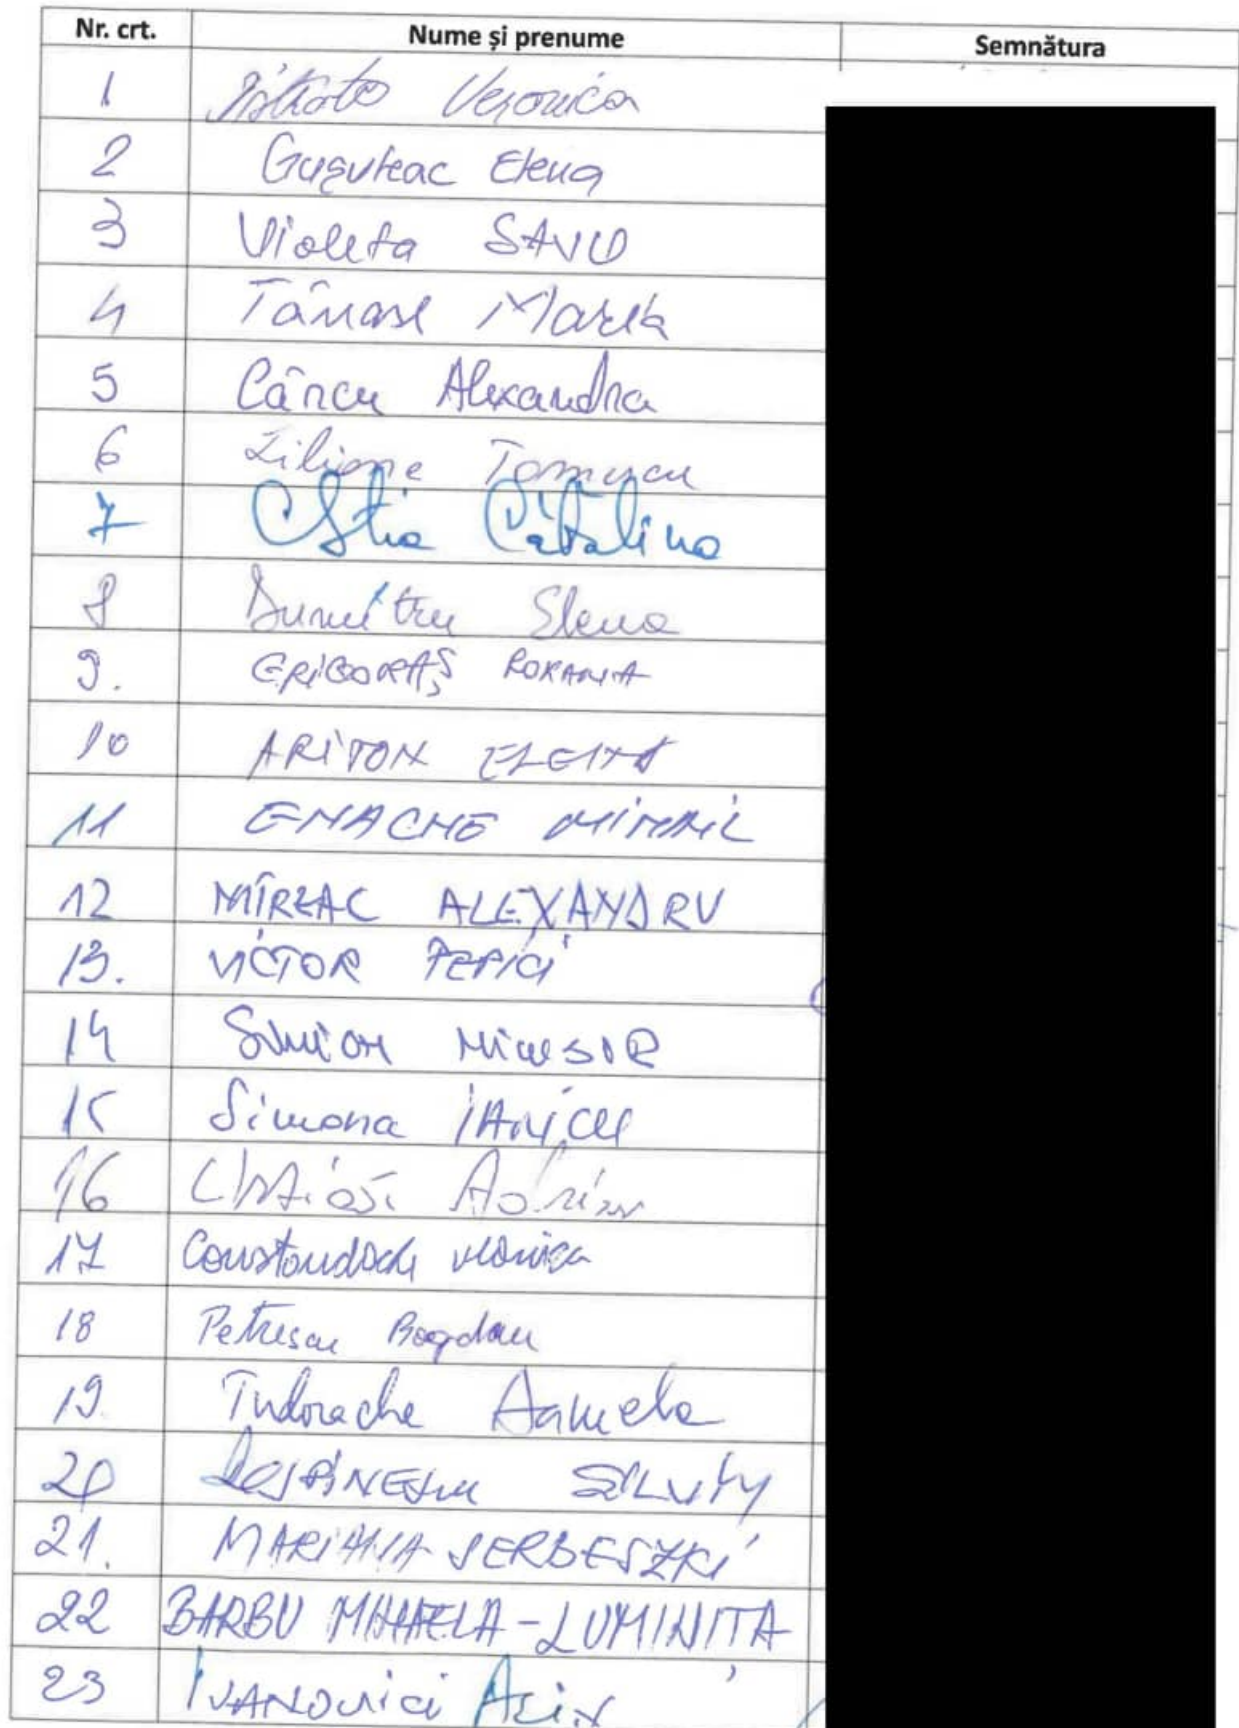 Nr. crt. Nume și prenume Semnătura
1 Veronica
2 Gușuleac Elena
3 Violeta SAVU
4 Tănase Maria
5 Cârcu Alexandra
6 Liliane
7 Cătălina
8 Dumitru Elena
9. GRIGORAȘ ROXANA
10 ARITON ELENA
11 ENACHE MIHAIL
12 MÎRZAC ALEXANDRU
13. VICTOR PEPICI
14 Simion
15 Simona
16
17 Constandachi
18 Petrescu Bogdan
19. Tudorache
20
21. MARIANA SERBESZKI
22 BARBU MIHAELA-LUMINIȚA
23 IVANOVICI